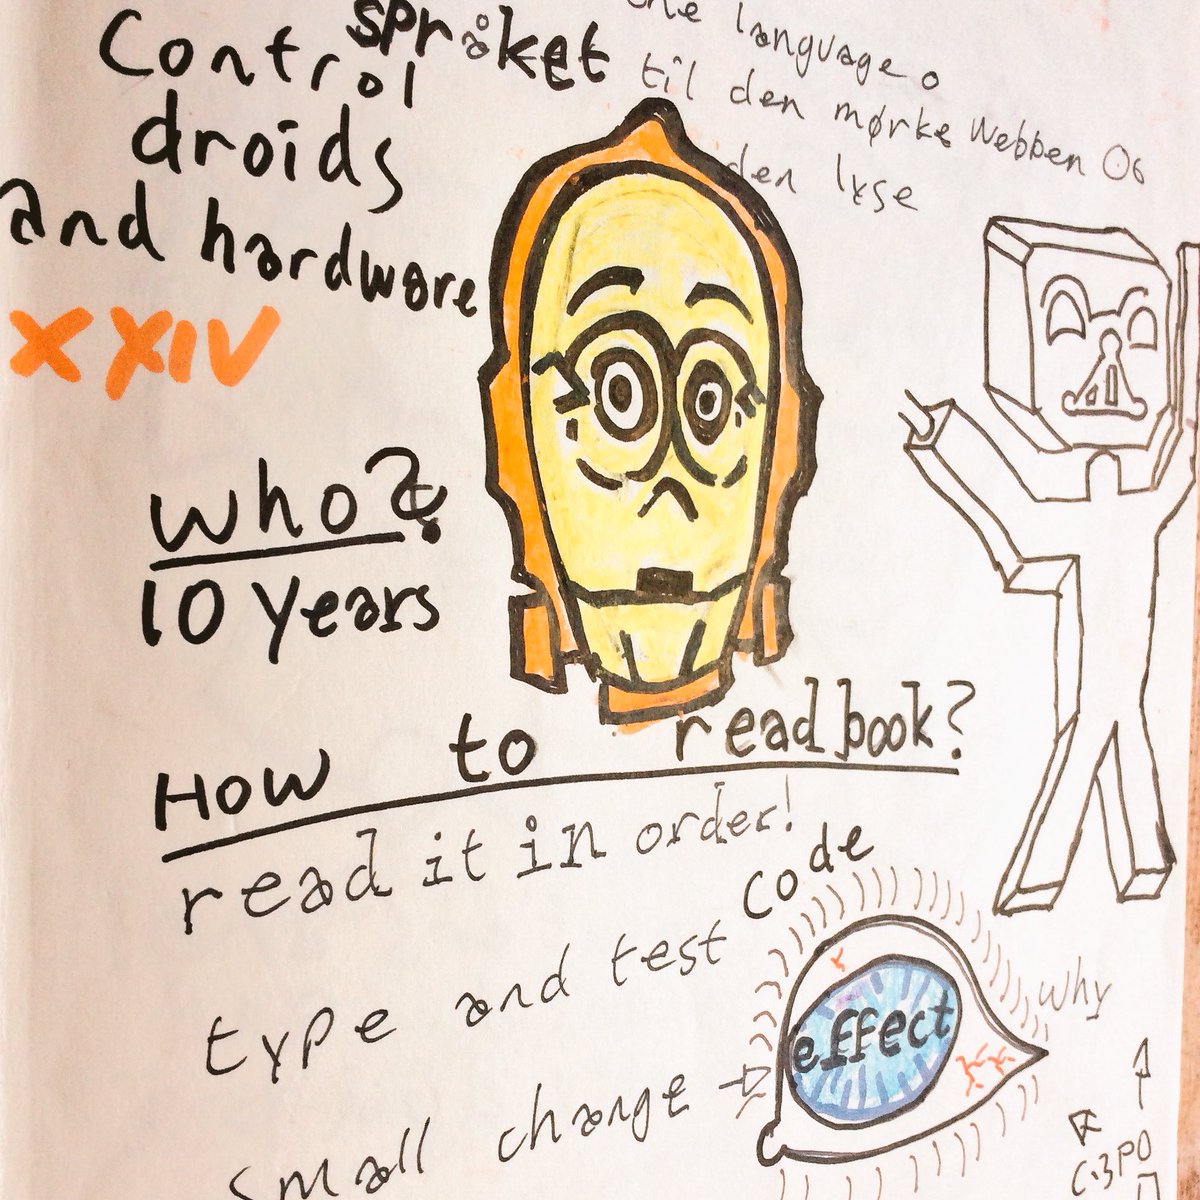 Control
droids
and hardware
XXIV
språket
the language o
til den mørke Webben Og
den lyse
Who?
10 Years
How to read book?
read it in order!
type and test code
small change →
effect
Why
C3PO